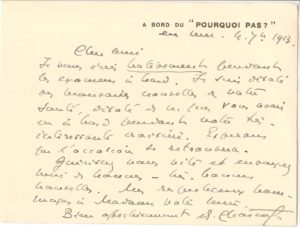 A BORD DU "POURQUOI PAS?"
en mer. 4. 7h 1913.
Cher ami
Je vous écris hâtivement pendant
les examens à bord. Je suis désolé
des mauvaises nouvelles de votre
santé, désolé de ne pas vous avoir
eu à bord pendant notre très
intéressante croisière. Espérons
que l'occasion se retrouvera.
Guérissez vous vite et envoyez
moi de bonnes - très bonnes
nouvelles. Mes respectueux hom-
mages à Madame votre
Bien affectueusement Charcot